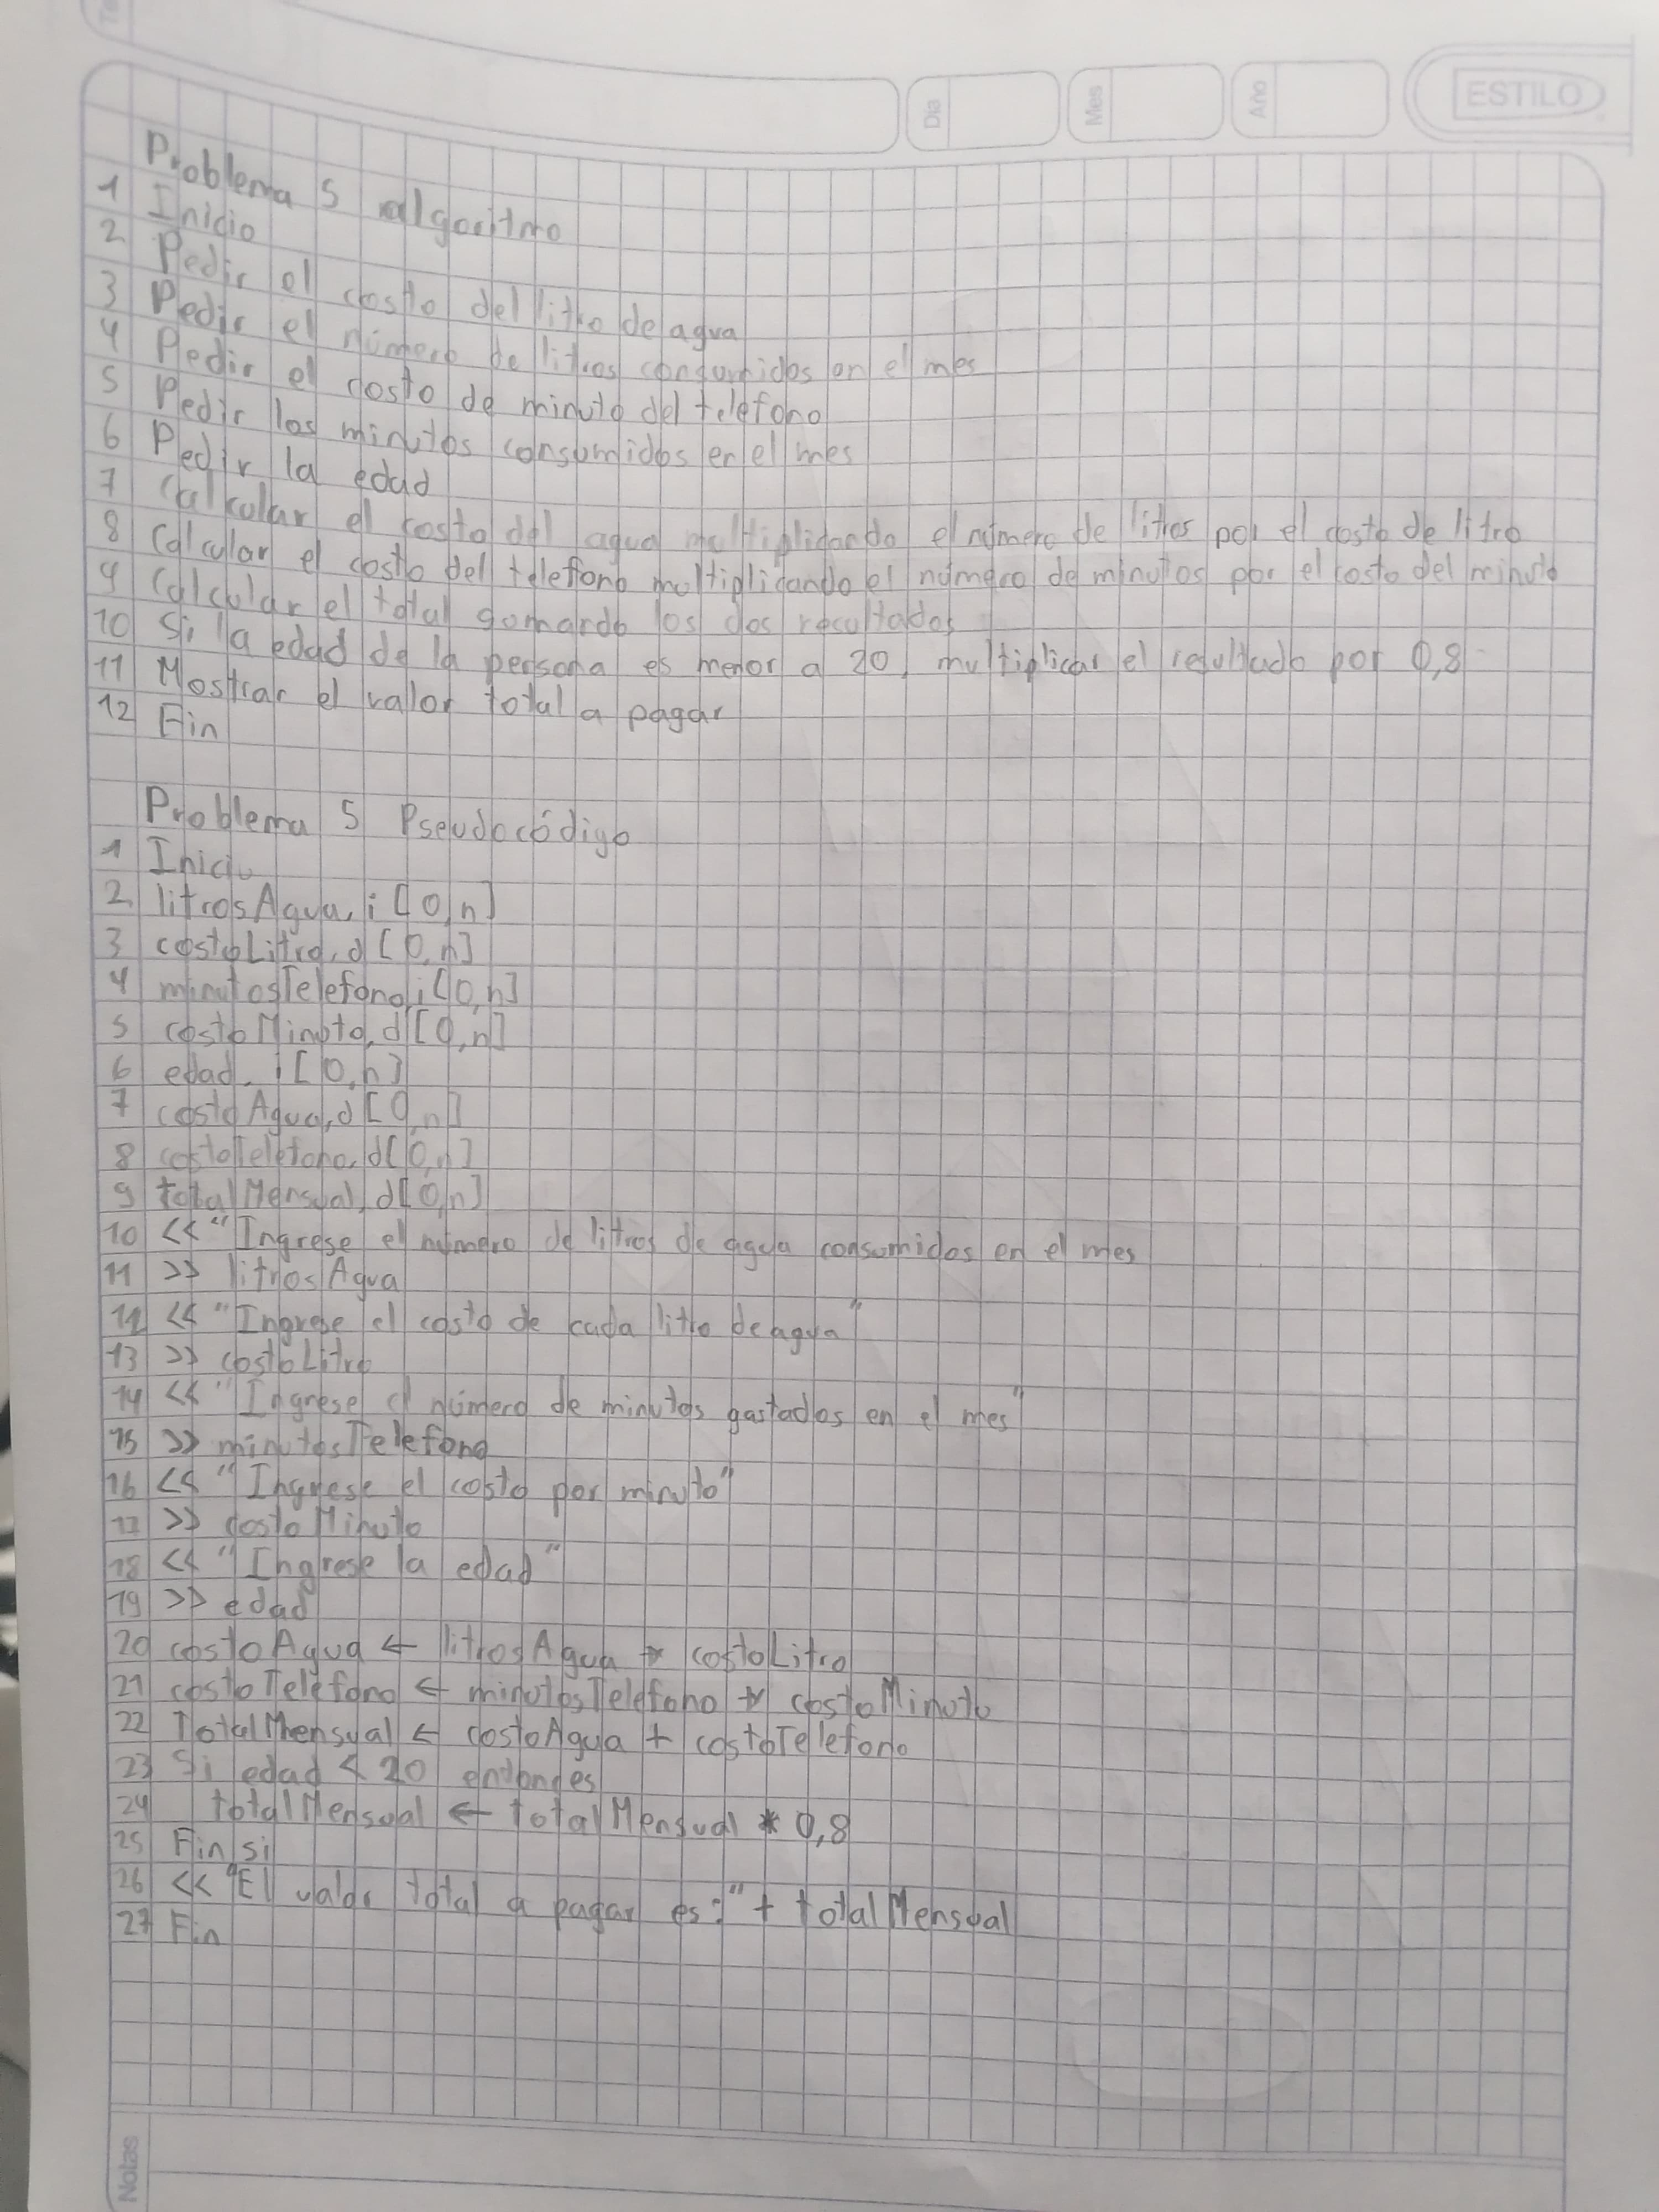 Te
Dia
Mes
Año
ESTILO
Problema 5 algoritmo
1 Inicio
2 Pedir el costo del litro de agua
3 Pedir el número de litros consumidos en el mes
4 Pedir el costo de minuto del telefono
5 Pedir los minutos consumidos en el mes
6 Pedir la edad
7 Calcular el costo del agua multiplicando el número de litros por el costo de litro
8 Calcular el costo del telefono multiplicando el número de minutos por el costo del minuto
9 Calcular el total sumando los dos resultados
10 Si la edad de la persona es menor a 20, multiplicar el resultado por 0,8
11 Mostrar el valor total a pagar
12 Fin
Problema 5 Pseudocódigo
1 Inicio
2 litrosAgua, i [0,n]
3 costoLitro, d [0,n]
4 minutosTelefono, i [0,n]
5 costoMinuto, d [0,n]
6 edad, i [0,n]
7 costoAgua, d [0,n]
8 costoTelefono, d [0,n]
9 totalMensual, d [0,n]
10 << "Ingrese el número de litros de agua consumidos en el mes
11 >> litrosAgua
12 << "Ingrese el costo de cada litro de agua"
13 >> costoLitro
14 << "Ingrese el número de minutos gastados en el mes"
15 >> minutosTelefono
16 << "Ingrese el costo por minuto"
17 >> costoMinuto
18 << "Ingrese la edad"
19 >> edad
20 costoAgua ← litrosAgua * costoLitro
21 costoTelefono ← minutosTelefono * costoMinuto
22 TotalMensual ← costoAgua + costoTelefono
23 Si edad < 20 entonces
24 totalMensual ← totalMensual * 0,8
25 Fin si
26 << "El valor total a pagar es:" + totalMensual
27 Fin
Notas